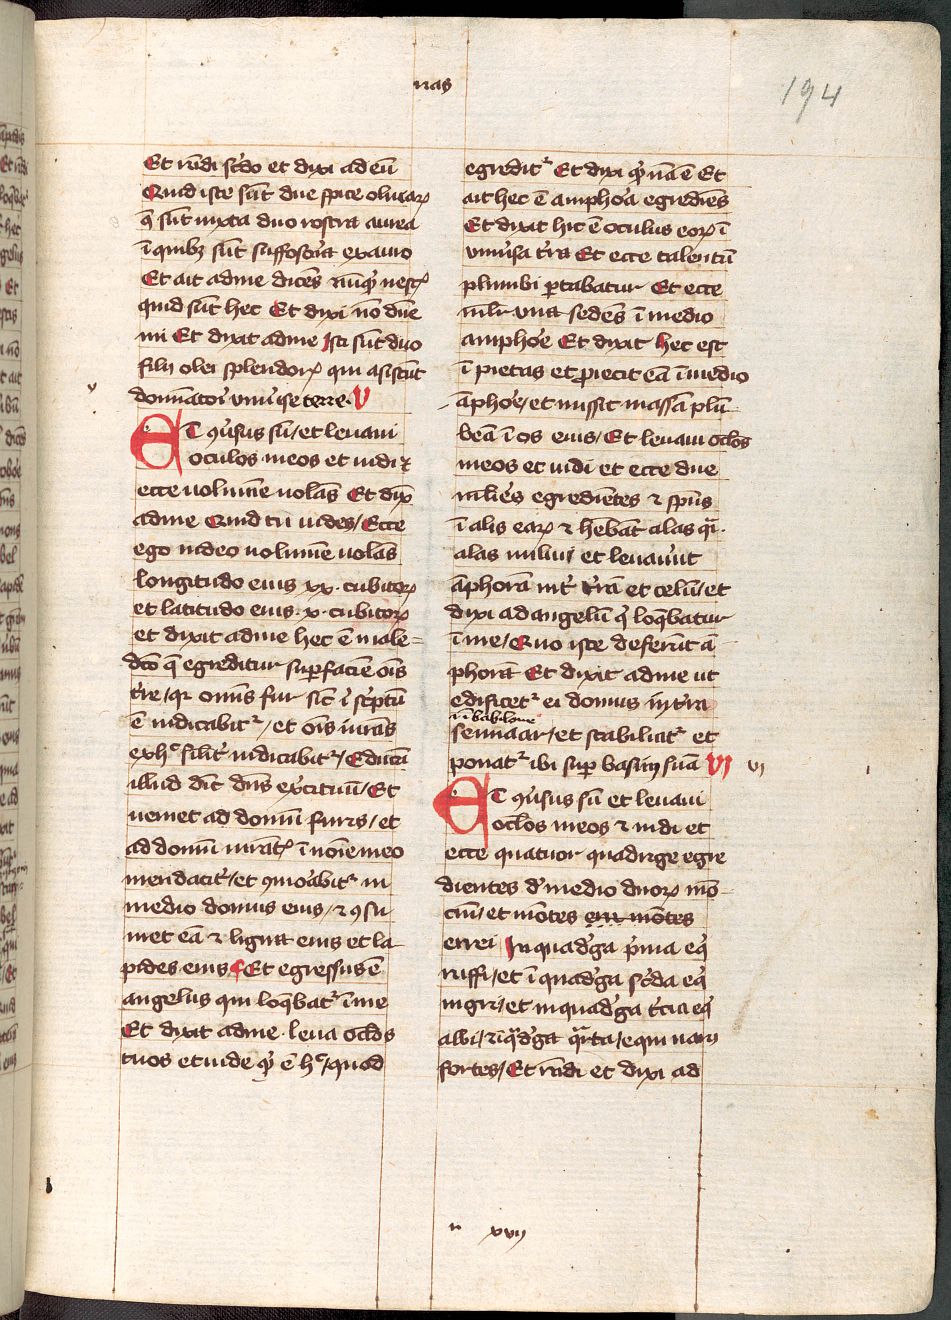 nas
194
Et rñdi scđo et dixi ad eũ
Quid iste sũt due spice oliuaꝝ
q̃ sũt iuxta duo rostra aurea
ĩ quibꝫ sũt suffosoria ex auro
Et ait ad me dicẽs nũqͥd nescꝭ
quid sũt hec Et dixi nõ dñe
mi Et dixit ad me Isti sũt duo
filij olei splendorꝭ qui asistũt
domĩatori vniu̓se terre. V
v
ET ↄuersus sũ / et leuaui
oculos meos et uidi ⁊
ecce uolumẽ uolãs Et dix̾
ad me Quid tu uides / Ecce
ego uideo uolumẽ uolãs
longitudo eius xx. cubitoꝝ
et latitudo eius .x. cubitoꝝ
et dixit ad me hec ẽ male-
dc̃o q̃ egreditur sup̱ faciẽ oĩs
tr̃e / qꝛ omĩs fur sic̃ ĩ scͥptũ
ẽ iudicabit᷑ / et oĩs iurãs
ex hͦ silit̾ iudicabit᷑ / Educã
illud dic̃ dñs ex̾cituũ / Et
ueniet ad domũ furis / et
ad domũ iurãtꝭ ĩ noĩe meo
mendacit̾ / et ↄmorabit᷑ in
medio domus eius / ⁊ ↄsu
met eã ⁊ ligna eius et la-
pides eius Et egressus ẽ
angelus qui loq̃bat᷑ ĩ me
Et dixit ad me . leua oc̃los
tuos et uide qͥd ẽ hͦ / quod
egredit᷑ Et dixi qͥdnã ẽ Et
ait hec ẽ amphora egrediẽs
Et dixit hic ẽ oculus eoꝝ ĩ
vniu̓sa tr̃a Et ecce talentũ
plumbi portabatur Et ecce
mulr̃ vna sedẽs ĩ medio
amphore Et dixit hec est
ĩpietas et proiecit eã ĩ medio
ãphore / et missit massã plũ-
beã ĩ os eius / Et leuaui oc̃los
meos et uidi et ecce due
mulieres egrediẽtes ⁊ spũs
ĩ alis eaꝝ ⁊ hebãt alas qͣ.
alas milui et leuauer̃t
ãphorã int̾ tr̃ã et celũ / et
dixi ad angelũ qͥ loq̃batur
ĩ me / Quo iste deferũt ã
phorã Et dixit ad me ut
edificet᷑ ei domus in tr̃a
.i. ĩ babilone
sennaar / et stabiliat᷑ et
ponat᷑ ibi sup̱ basim suã VI
vi
ET ↄuersus sũ et leuaui
oc̃los meos ⁊ uidi et
ecce quatuor quadrige egre
dientes de medio duoꝝ mõ-
ciũ / et mõtes mõtes
errei In quadͥga prima eqͥ
ruffi / et ĩ quadͥga scđa eqͥ
nigri / et in quadͥga t̾cia eqͥ
albi / ⁊ ĩ qͣdͥga qͣrta / equi uarij
fortes / Et rñdi et dixi ad
xvij